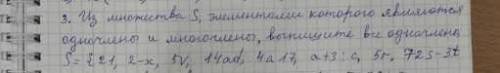 3. Из множества S, элементами которого являются
одночлены и многочлены, выпишите все одночлены
S={21, 2-x, 5v, 14ad, 4a17, a+3:c, 5r, 72s-3t